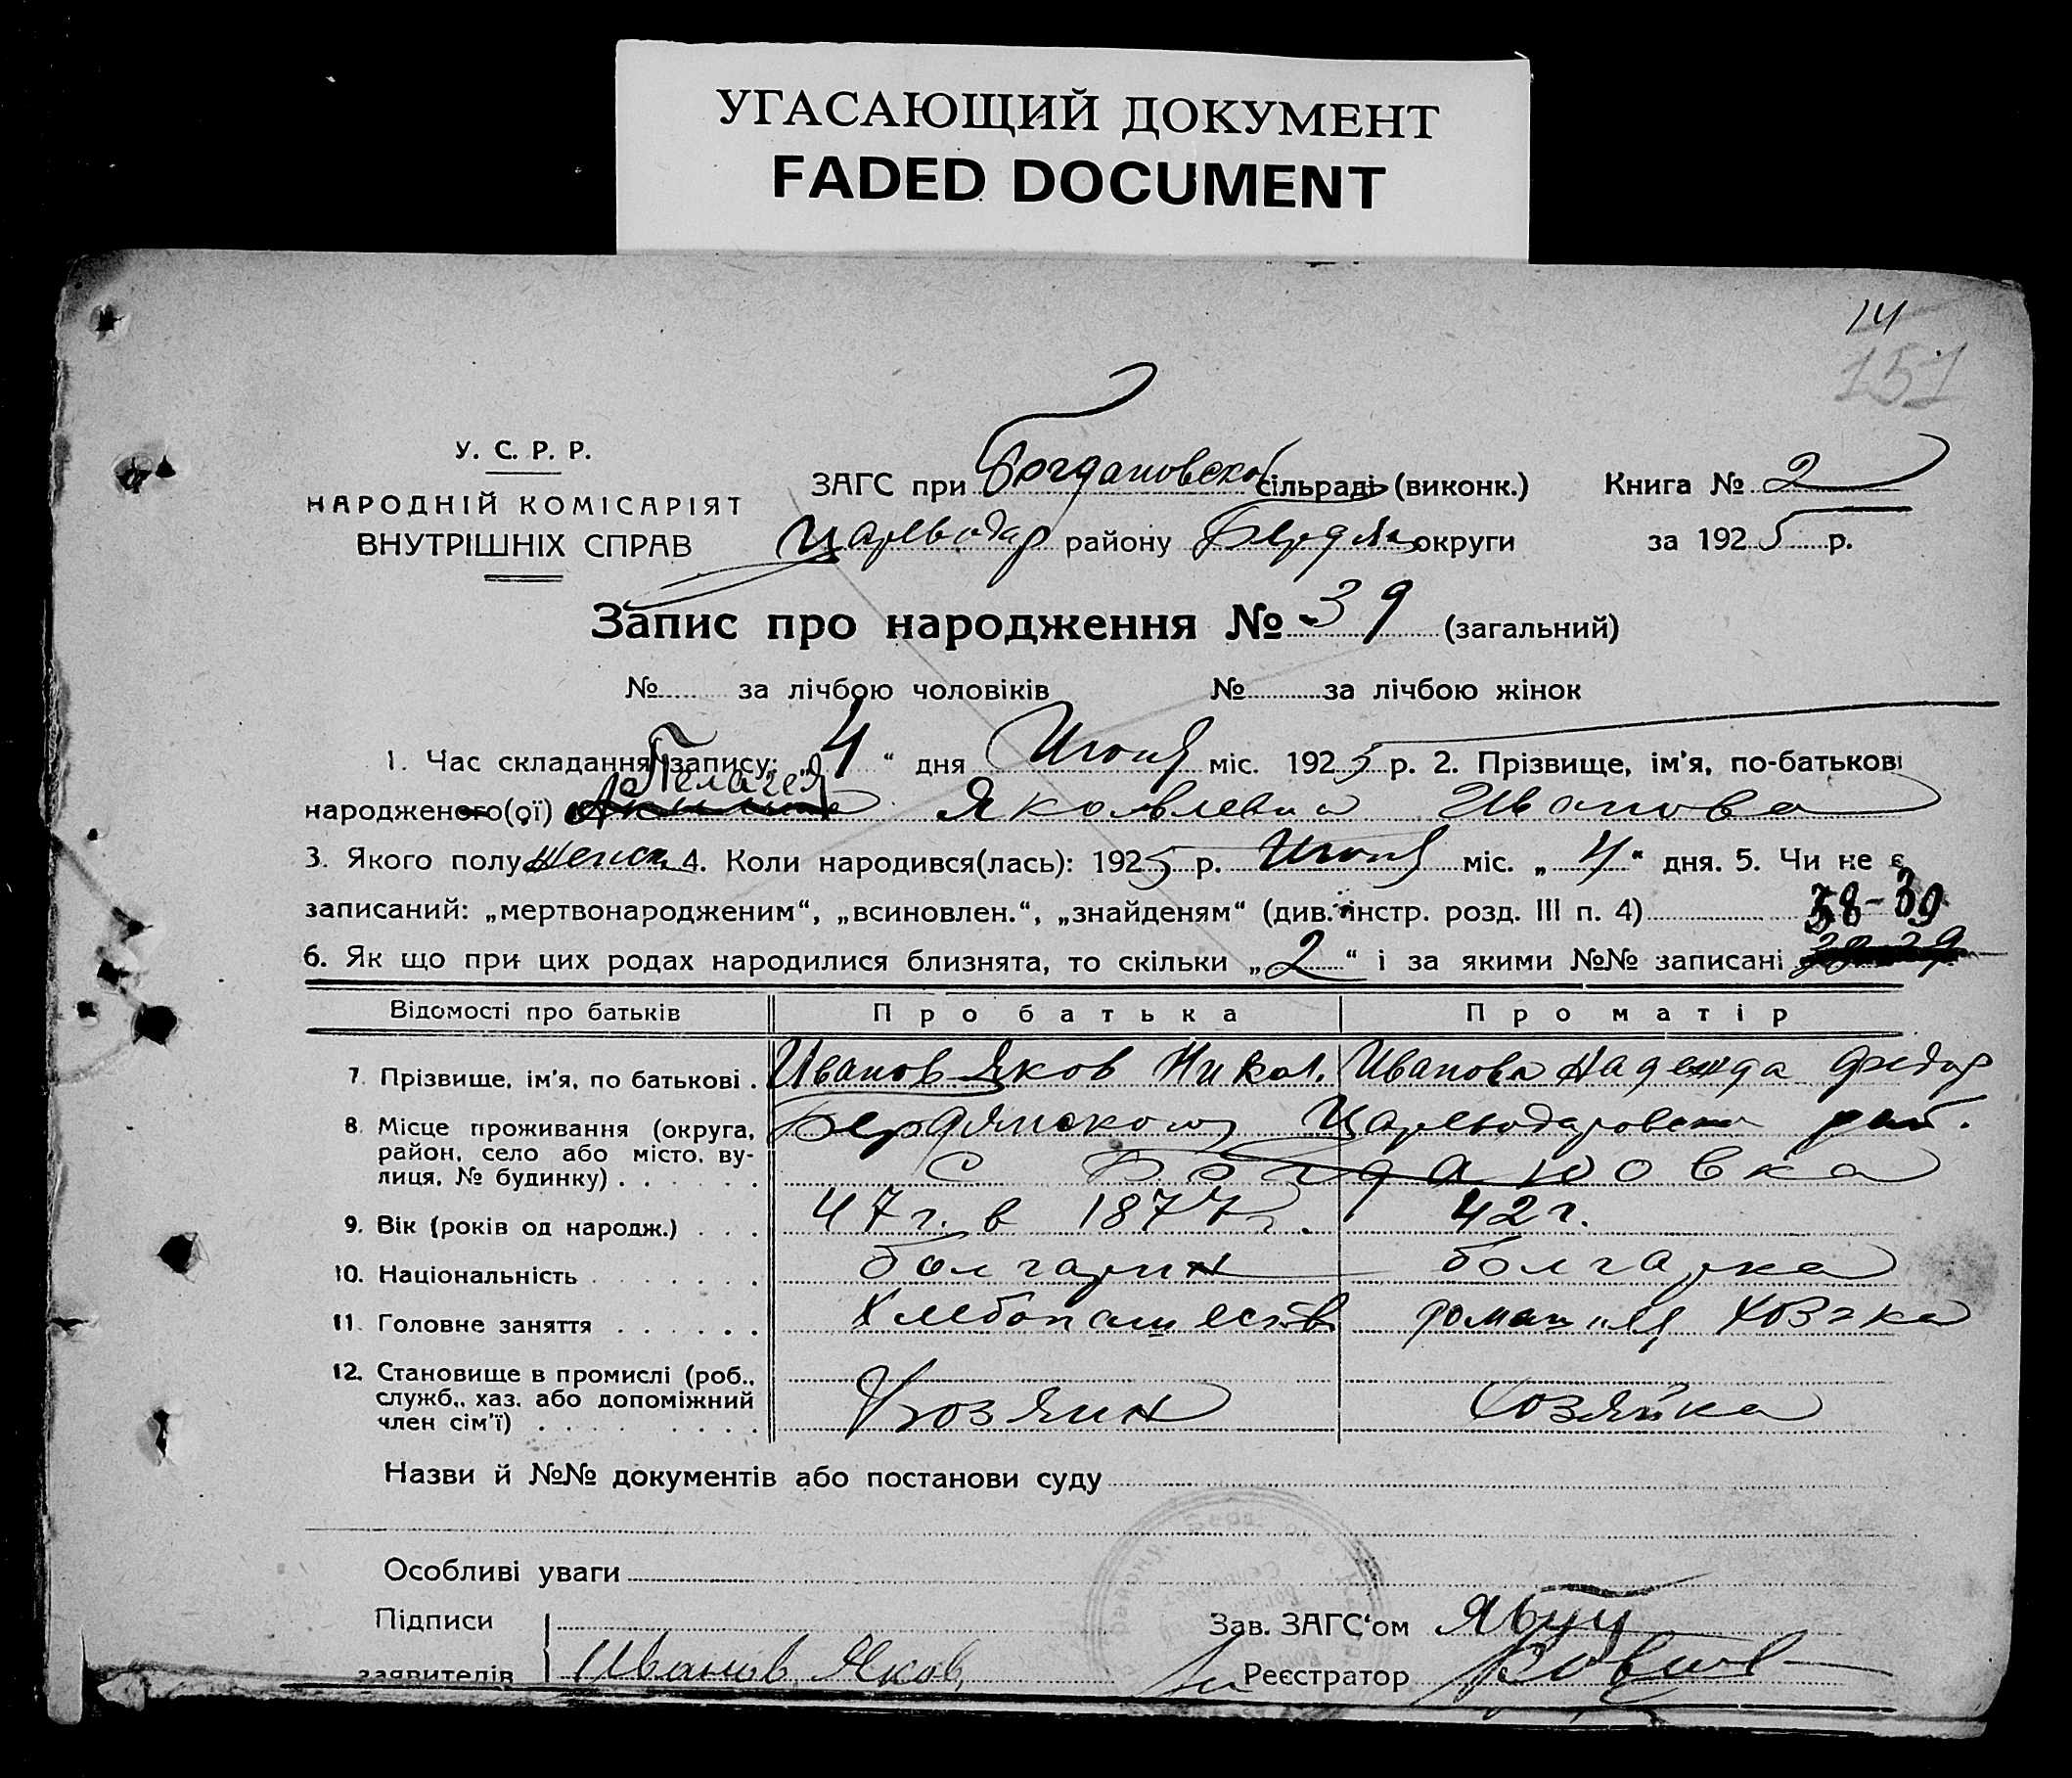 УГАСАЮЩИЙ ДОКУМЕНТ
FADED DOCUMENT
14
151
У. С. Р. Р.
НАРОДНІЙ КОМІСАРІЯТ
ВНУТРІШНІХ СПРАВ
ЗАГС при Богдановской сільраді (виконк.)
Цареводар району Бердян округи
Книга № 2
за 1925 р.
Запис про народження № 39 (загальний)
№ за лічбою чоловіків № за лічбою жінок
1. Час складання запису: „4“ дня Июня міс. 1925 р. 2. Прізвище, ім'я, по-батькові
Пелагея
народженого(ої) Яковлевна Иванова
3. Якого полу женск 4. Коли народився(лась): 1925 р. Июня міс. „4“ дня. 5. Чи не є
записаний: „мертвонародженим“, „всиновлен.“, „знайденям“ (див. інстр. розд. III п. 4)
38-39
6. Як що при цих родах народилися близнята, то скільки „2“ і за якими №№ записані
Відомості про батьків Про батька Про матір
7. Прізвище, ім'я, по батькові . Иванов Яков Никол. Иванова Надежда Федор
8. Місце проживання (округа, район, село або місто, вулиця, № будинку) . . . . . . Бердянского Цареводаровско рай.
с Богдановка
9. Вік (років од народж.) . . . 47 г. в 1877 г. 42 г.
10. Національність . . . . . . . болгарин болгарка
11. Головне заняття . . . . . . Хлебопашеств домашняя Хозяка
12. Становище в промислі (роб., служб., хаз. або допоміжний член сім'ї) . . . . . . . . Хозяин Хозяйка
Назви й №№ документів або постанови суду
Особливі уваги
Підписи заявителів Иванов Яков
Зав. ЗАГС'ом
Реєстратор